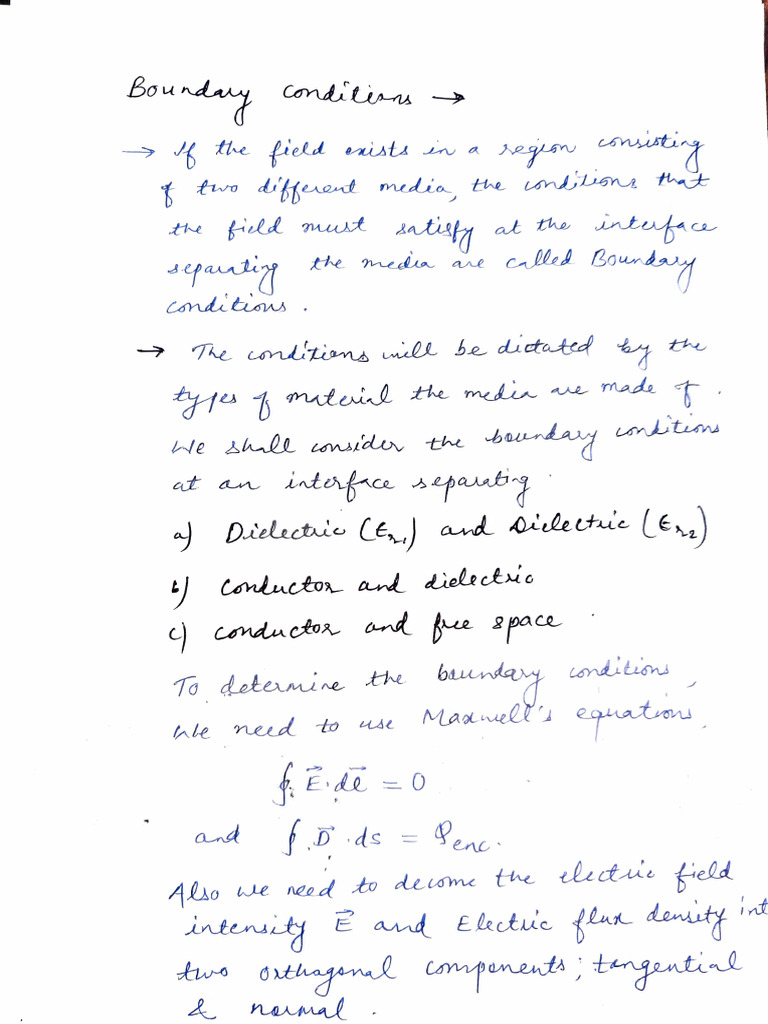 Boundary conditions →
→ If the field exists in a region consisting
of two different media, the conditions that
the field must satisfy at the interface
separating the media are called Boundary
conditions.
→ The conditions will be dictated by the
types of material the media are made of.
We shall consider the boundary conditions
at an interface separating.
a) Dielectric (εr1) and Dielectric (εr2)
b) conductor and dielectric
c) conductor and free space.
To determine the boundary conditions,
we need to use Maxwell's equations,
∮ E⃗ · dl⃗ = 0
and ∮ D⃗ · ds = Qenc.
Also we need to decome the electric field
intensity E⃗ and Electric flux density int
two orthagonal components; tangential
& normal.